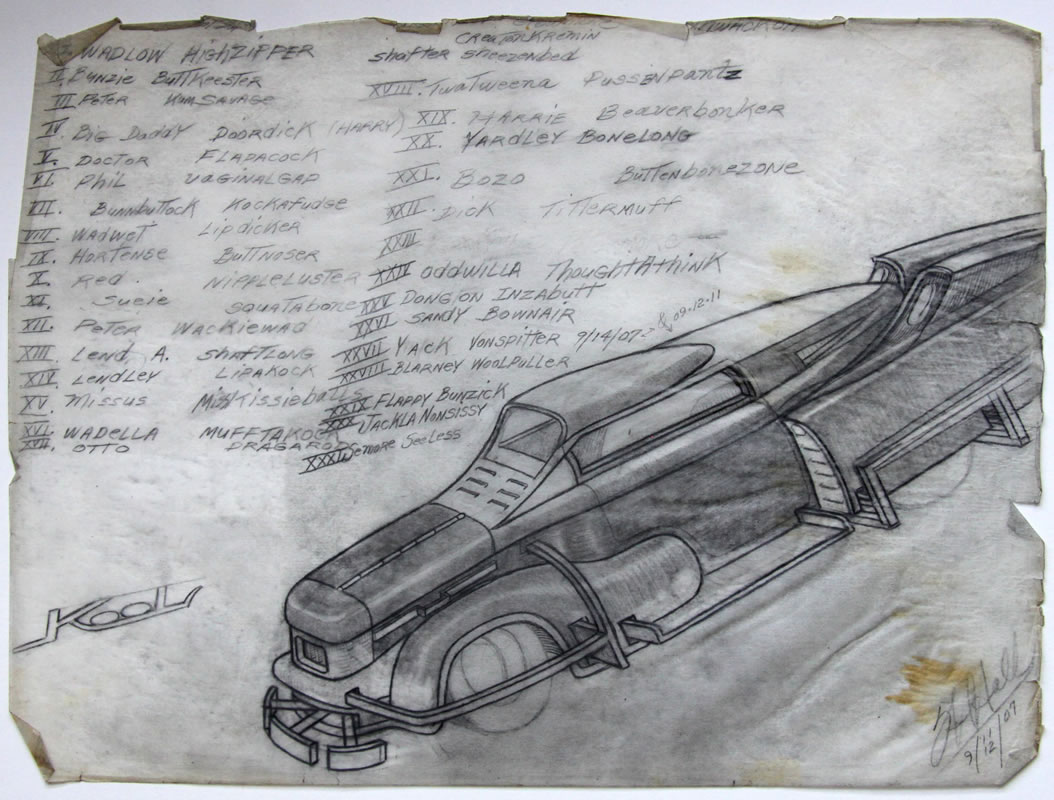 WADLOW HIGHZIPPER
II. BUNZIE BUTTKEESTER
III PETER KUMSAVAGE
IV. BIG DADDY DOORDICK (HARRY)
V. DOCTOR FLAPACOCK
VI. PHIL VAGINALGAP
VII. BUNNBUTTOCK KOCKAFUDGE
VIII. WADWET LIPDICKER
IX. HORTENSE BUTTNOSER
X. RED NIPPLELUSTER
XI. SUEIE SQUATABONE
XII. PETER WACKIEWAD
XIII. LEND A. SHAFTLONG
XIV. LENDLEY LIPAKOCK
XV. MISSUS MILKISSIEBALLS
XVI. WADELLA MUFFTAKOCK
XVII. OTTO DRAGAROD
CREATONKREMIN
SHAFTER SNEEZONBED
XVIII. TWATWEENA PUSSENPANTZ
XIX. HARRIE BEAVERBONKER
XX. YARDLEY BONELONG
XXI. BOZO BUTTENBONEZONE
XXII. DICK TITTERMUFF
XXIII
XXIV ODDWILLA THOUGHTATHINK
XXV DONG ON INZABUTT
XXVI SANDY BOWNAIR
XXVII YACK VONSPITTER 9/14/07 -> & 09.12.11
XXVIII BLARNEY WOOLPULLER
XXIX FLAPPY BUNZICK
XXX JACKLA NONSISSY
XXXI SEMORE SEELESS
KOOL
Hall
9/11/12/07